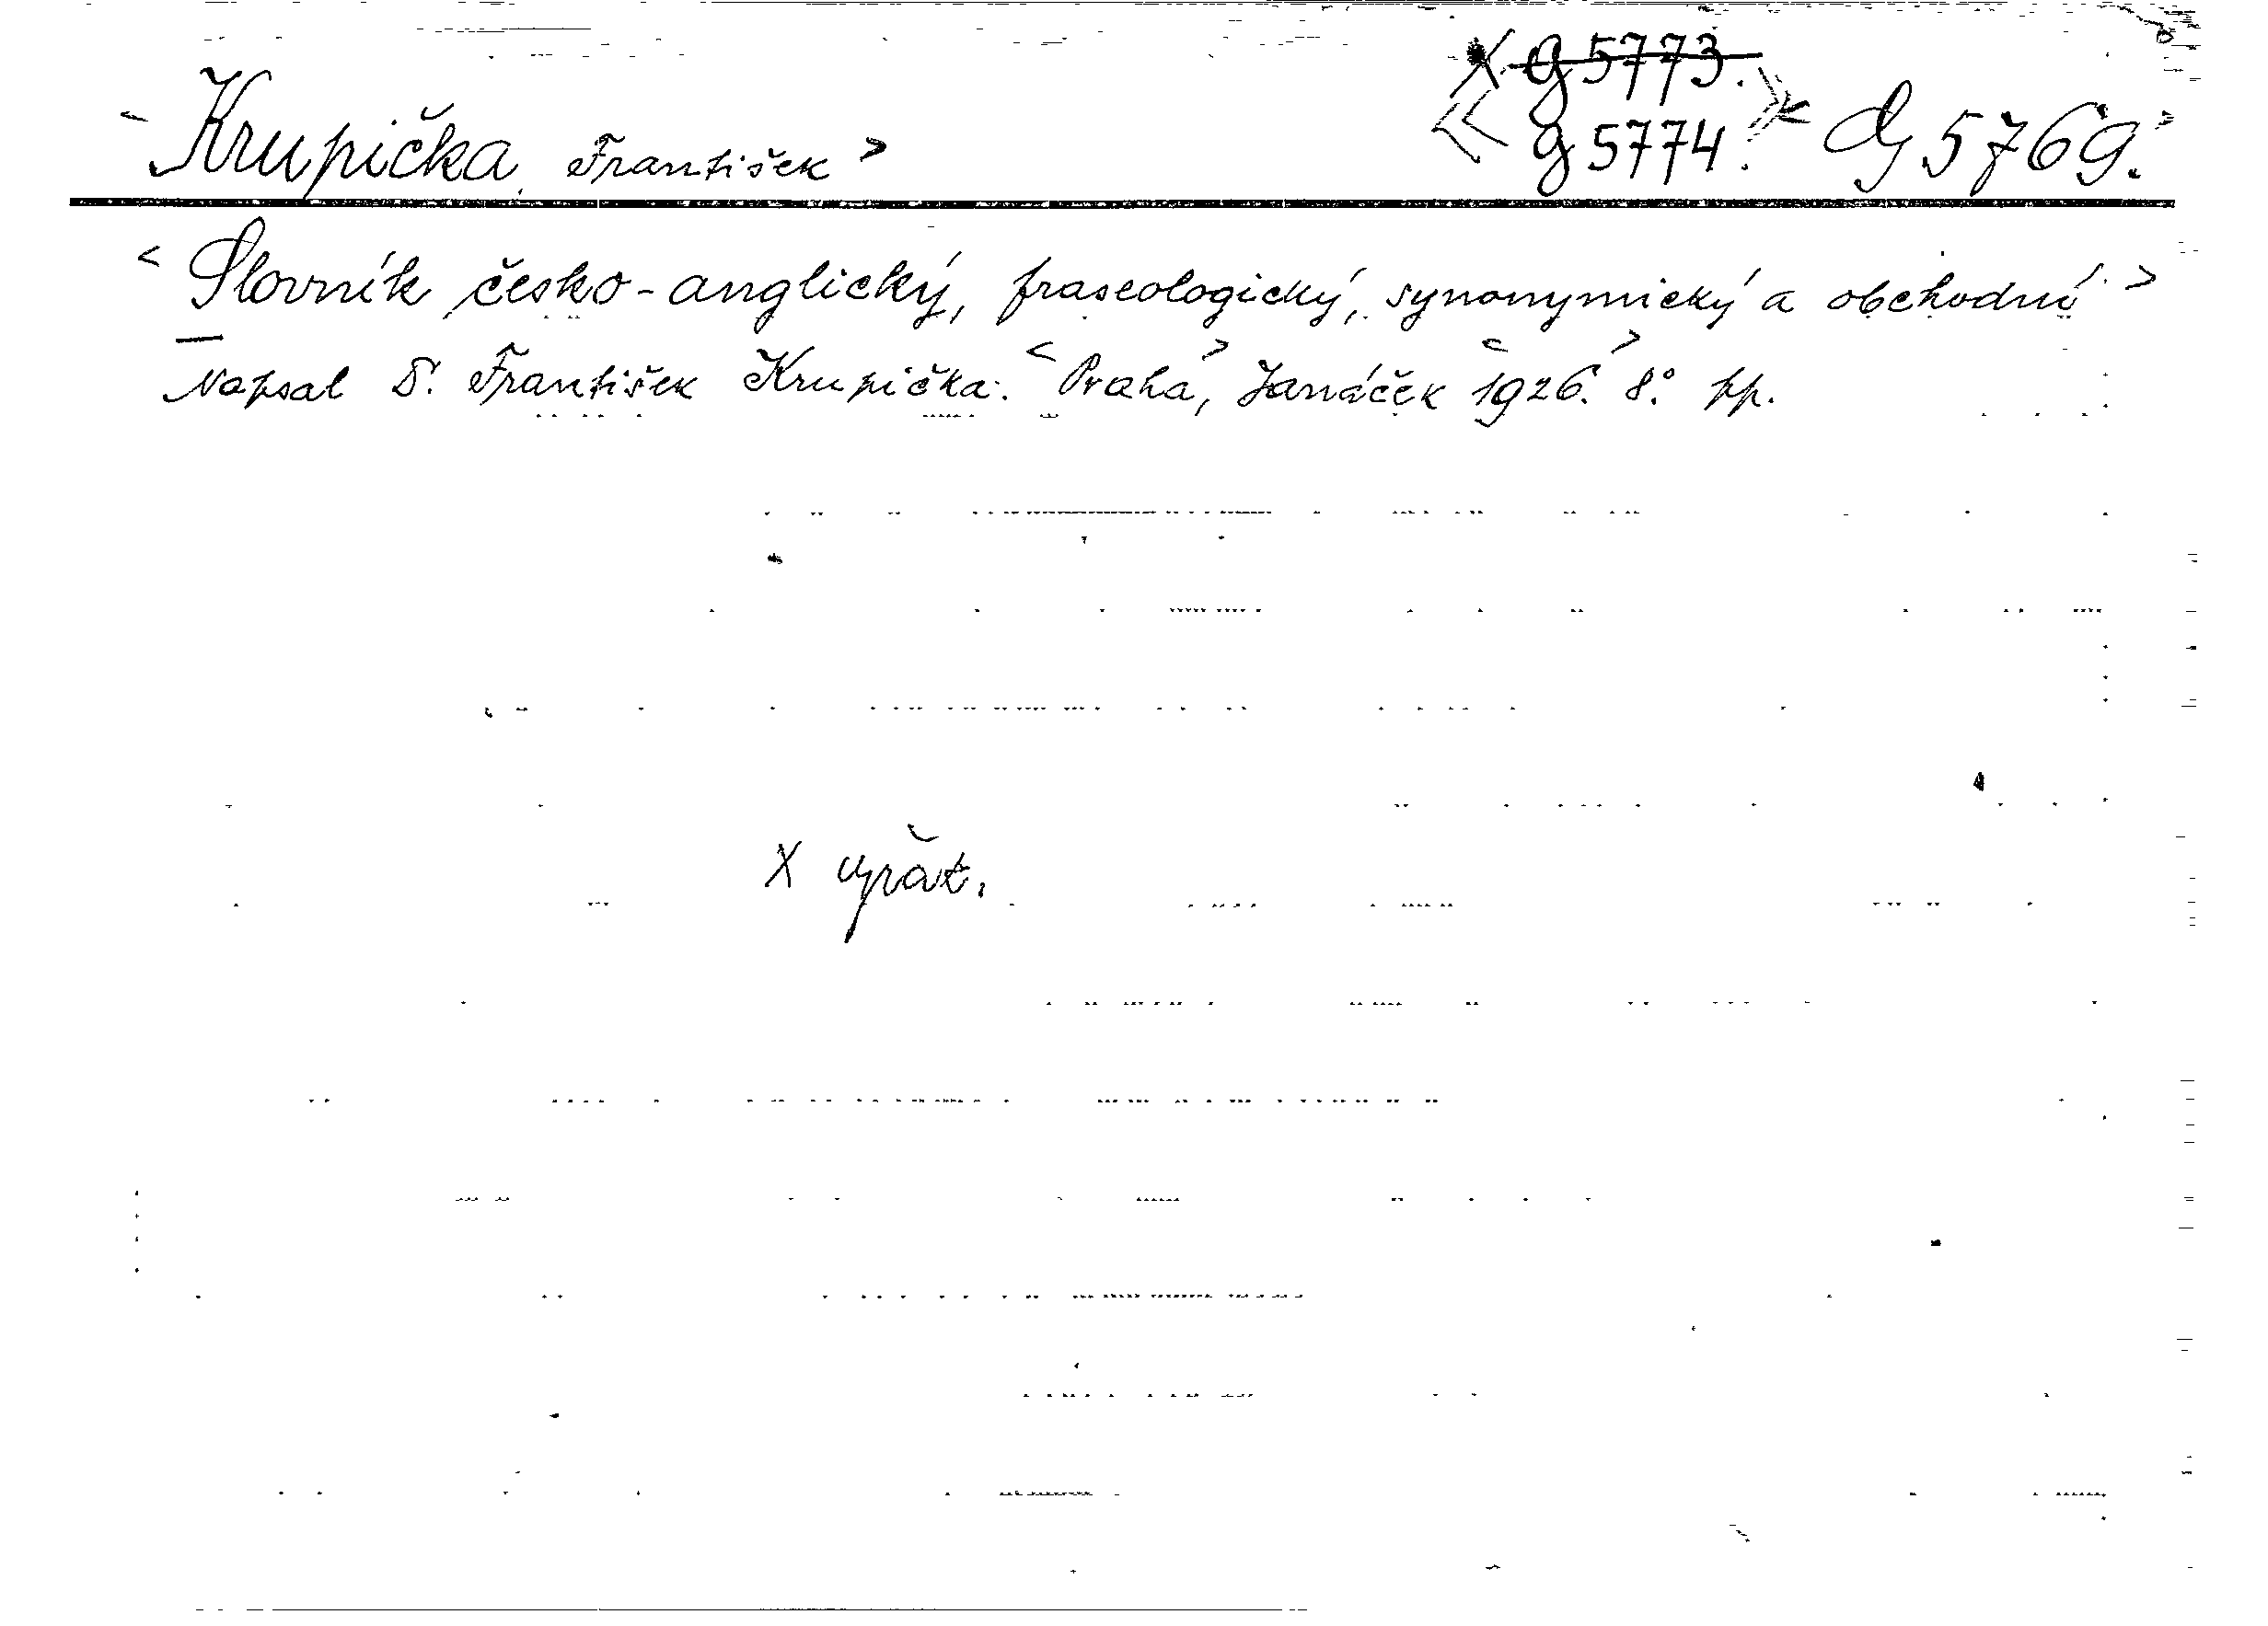 X g 5773.
Krupička, František > « g 5774. » G 5769.
< Slovník česko-anglický, fraseologický, synonymický a obchodní. >
Napsal D. František Krupička. <Praha>, Janáček <1926.> 8° pp.
X vyřat.